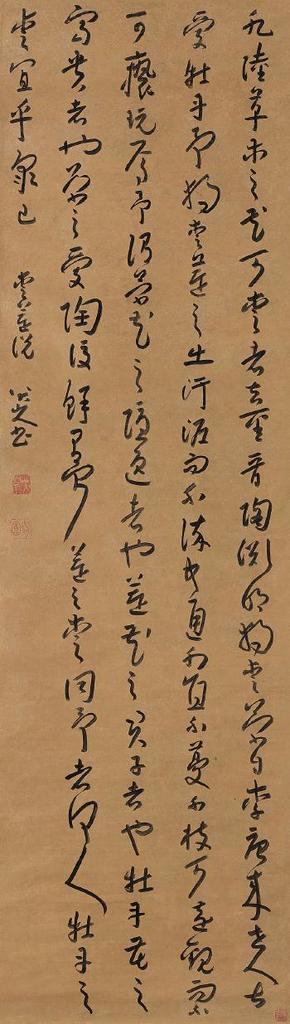 水陸草木之花可愛者甚蕃晉陶淵明獨愛菊自李唐來世人甚
愛牡丹予獨愛蓮之出淤泥而不染中通外直不蔓不枝可遠觀而不
可褻玩焉予謂菊花之隱逸者也蓮花之君子者也牡丹花之
富貴者也菊之愛陶後鮮有聞蓮之愛同予者何人牡丹之
愛宜乎眾已 愛蓮說 八大山人書